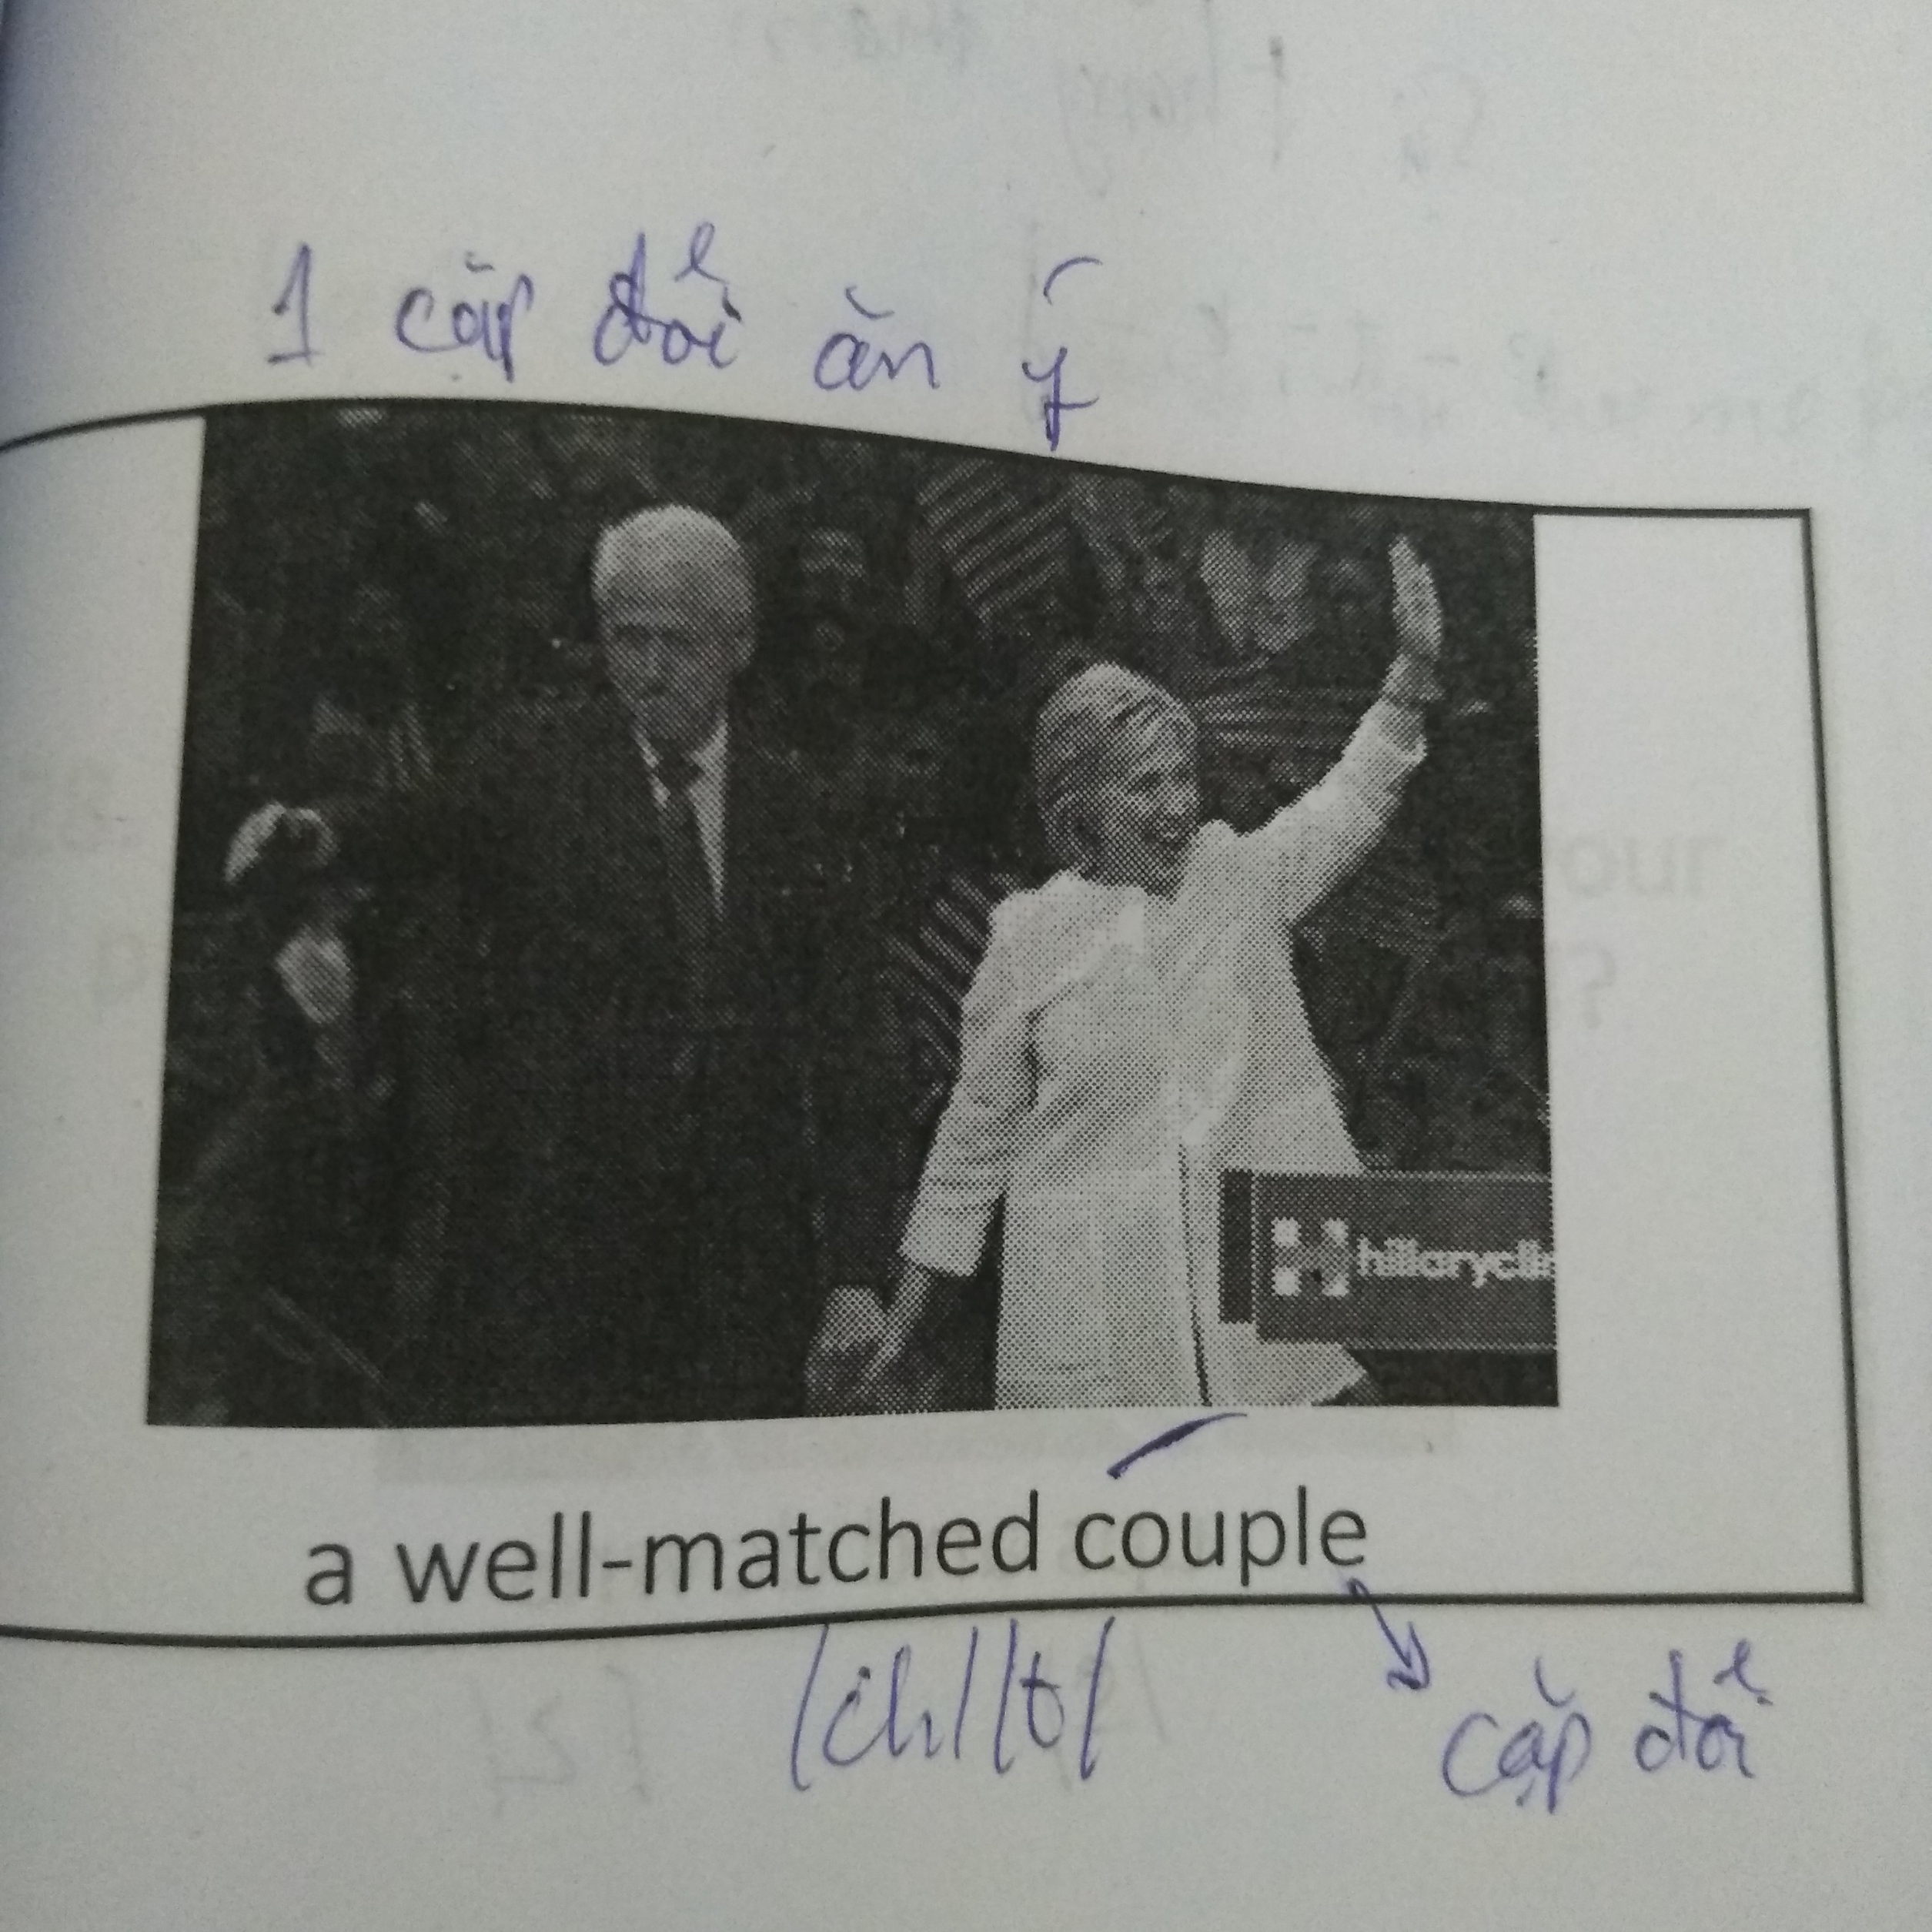 1 cặp đôi ăn ý
hillarycli
a well-matched couple
/ch/ /t/
cặp đôi